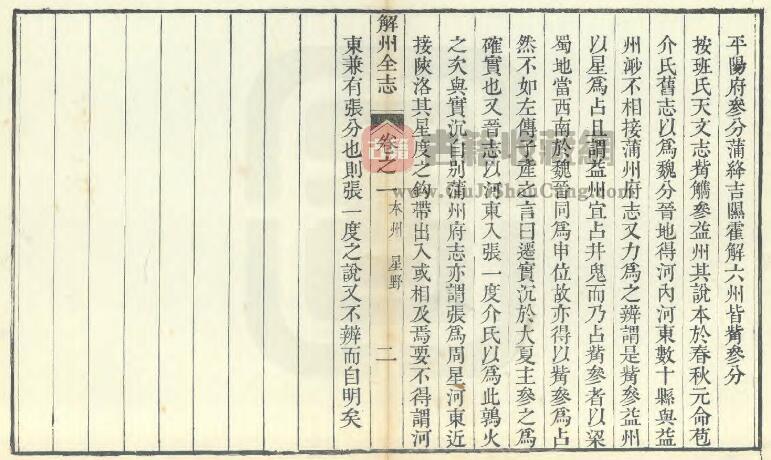 平陽府參分蒲絳吉隰霍解六州皆觜參分
按班氏天文志觜觿參益州其說本於春秋元命苞
介氏舊志以爲魏分晉地得河內河東數十縣與益
州渺不相接蒲州府志又力爲之辨謂是觜參益州
以星爲占且謂益州宜占井鬼而乃占觜參者以梁
蜀地當西南於魏晉同爲申位故亦得以觜參爲占
然不如左傳子產之言曰遷實沉於大夏主參之爲
確實也又晉志以河東入張一度介氏以爲此鶉火
之次與實沉自別蒲州府志亦謂張爲周星河東近
接陝洛其星度之鈎帶出入或相及焉要不得謂河
解州全志
卷之一
本州 星野
二
東兼有張分也則張一度之說又不辨而自明矣
古籍收藏網
www.GuJiShouCang.com